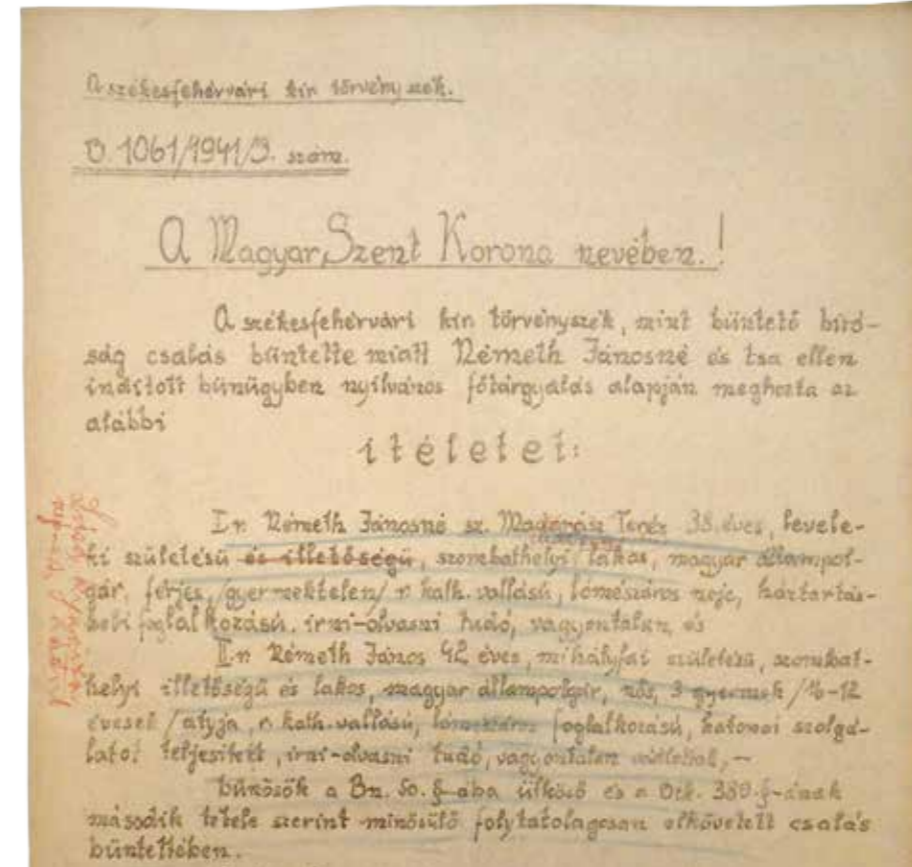 A székesfehérvári kir törvényszék.
B. 1061/1941/3. szám.
A Magyar Szent Korona nevében.!
A székesfehérvári kir törvényszék, mint büntető bíró-
ság csalás büntette miatt Németh Jánosné és tsa ellen
indított bünügyben nyilvános főtárgyalás alapján meghozta az
alábbi
ítéletet:
I r. Németh Jánosné sz. Madarász Teréz 38 éves, levele-
ki születésű és illetőségű, szombathelyi lakos, magyar állampol-
gár, férjes, /gyermektelen/ r. kath. vallású, lómészáros neje, háztartás-
beli foglalkozású, irni-olvasni tudó, vagyontalan, és
II r. Németh János 42 éves, mihályfai születésű, szombat-
helyi illetőségű és lakos, magyar állampolgár, nős, 3 gyermek /16-12
évesek/ atyja, r. kath. vallású, lómészáros foglalkozású, katonai szolgá-
latot teljesített, irni-olvasni tudó, vagyontalan vádlottak,-
bűnösök a Bn. 50. §-ába ütköző és a Btk. 380. §-ának
második tétele szerint minősülő folytatólagosan elkövetett csalás
büntettében.